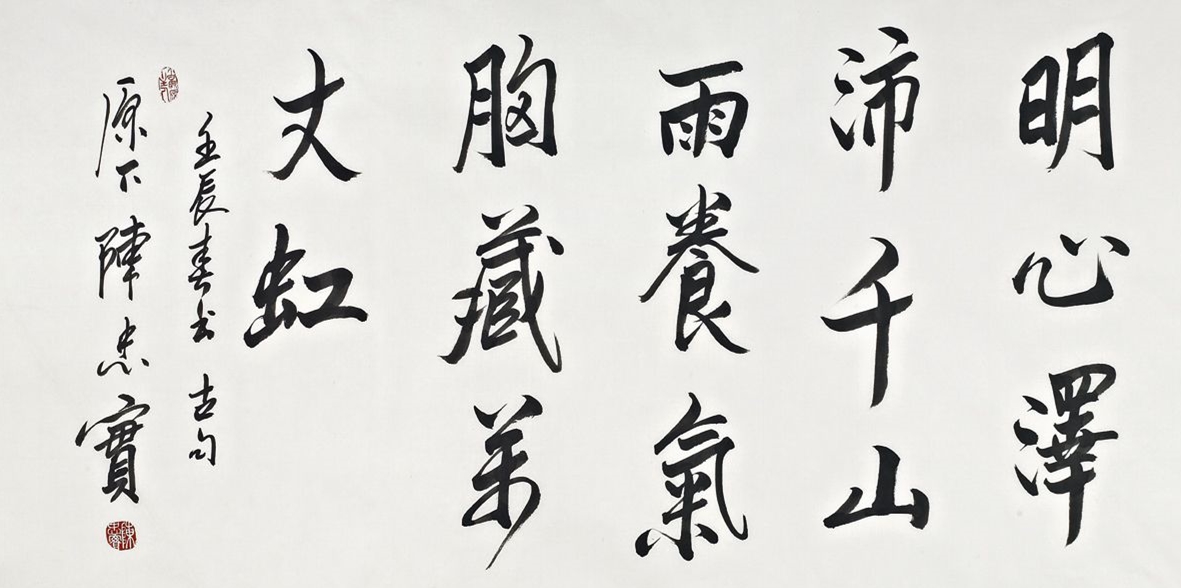 明心澤
沛千山
雨養氣
胸藏萬
丈虹
壬辰春书 古句
原下陳忠實